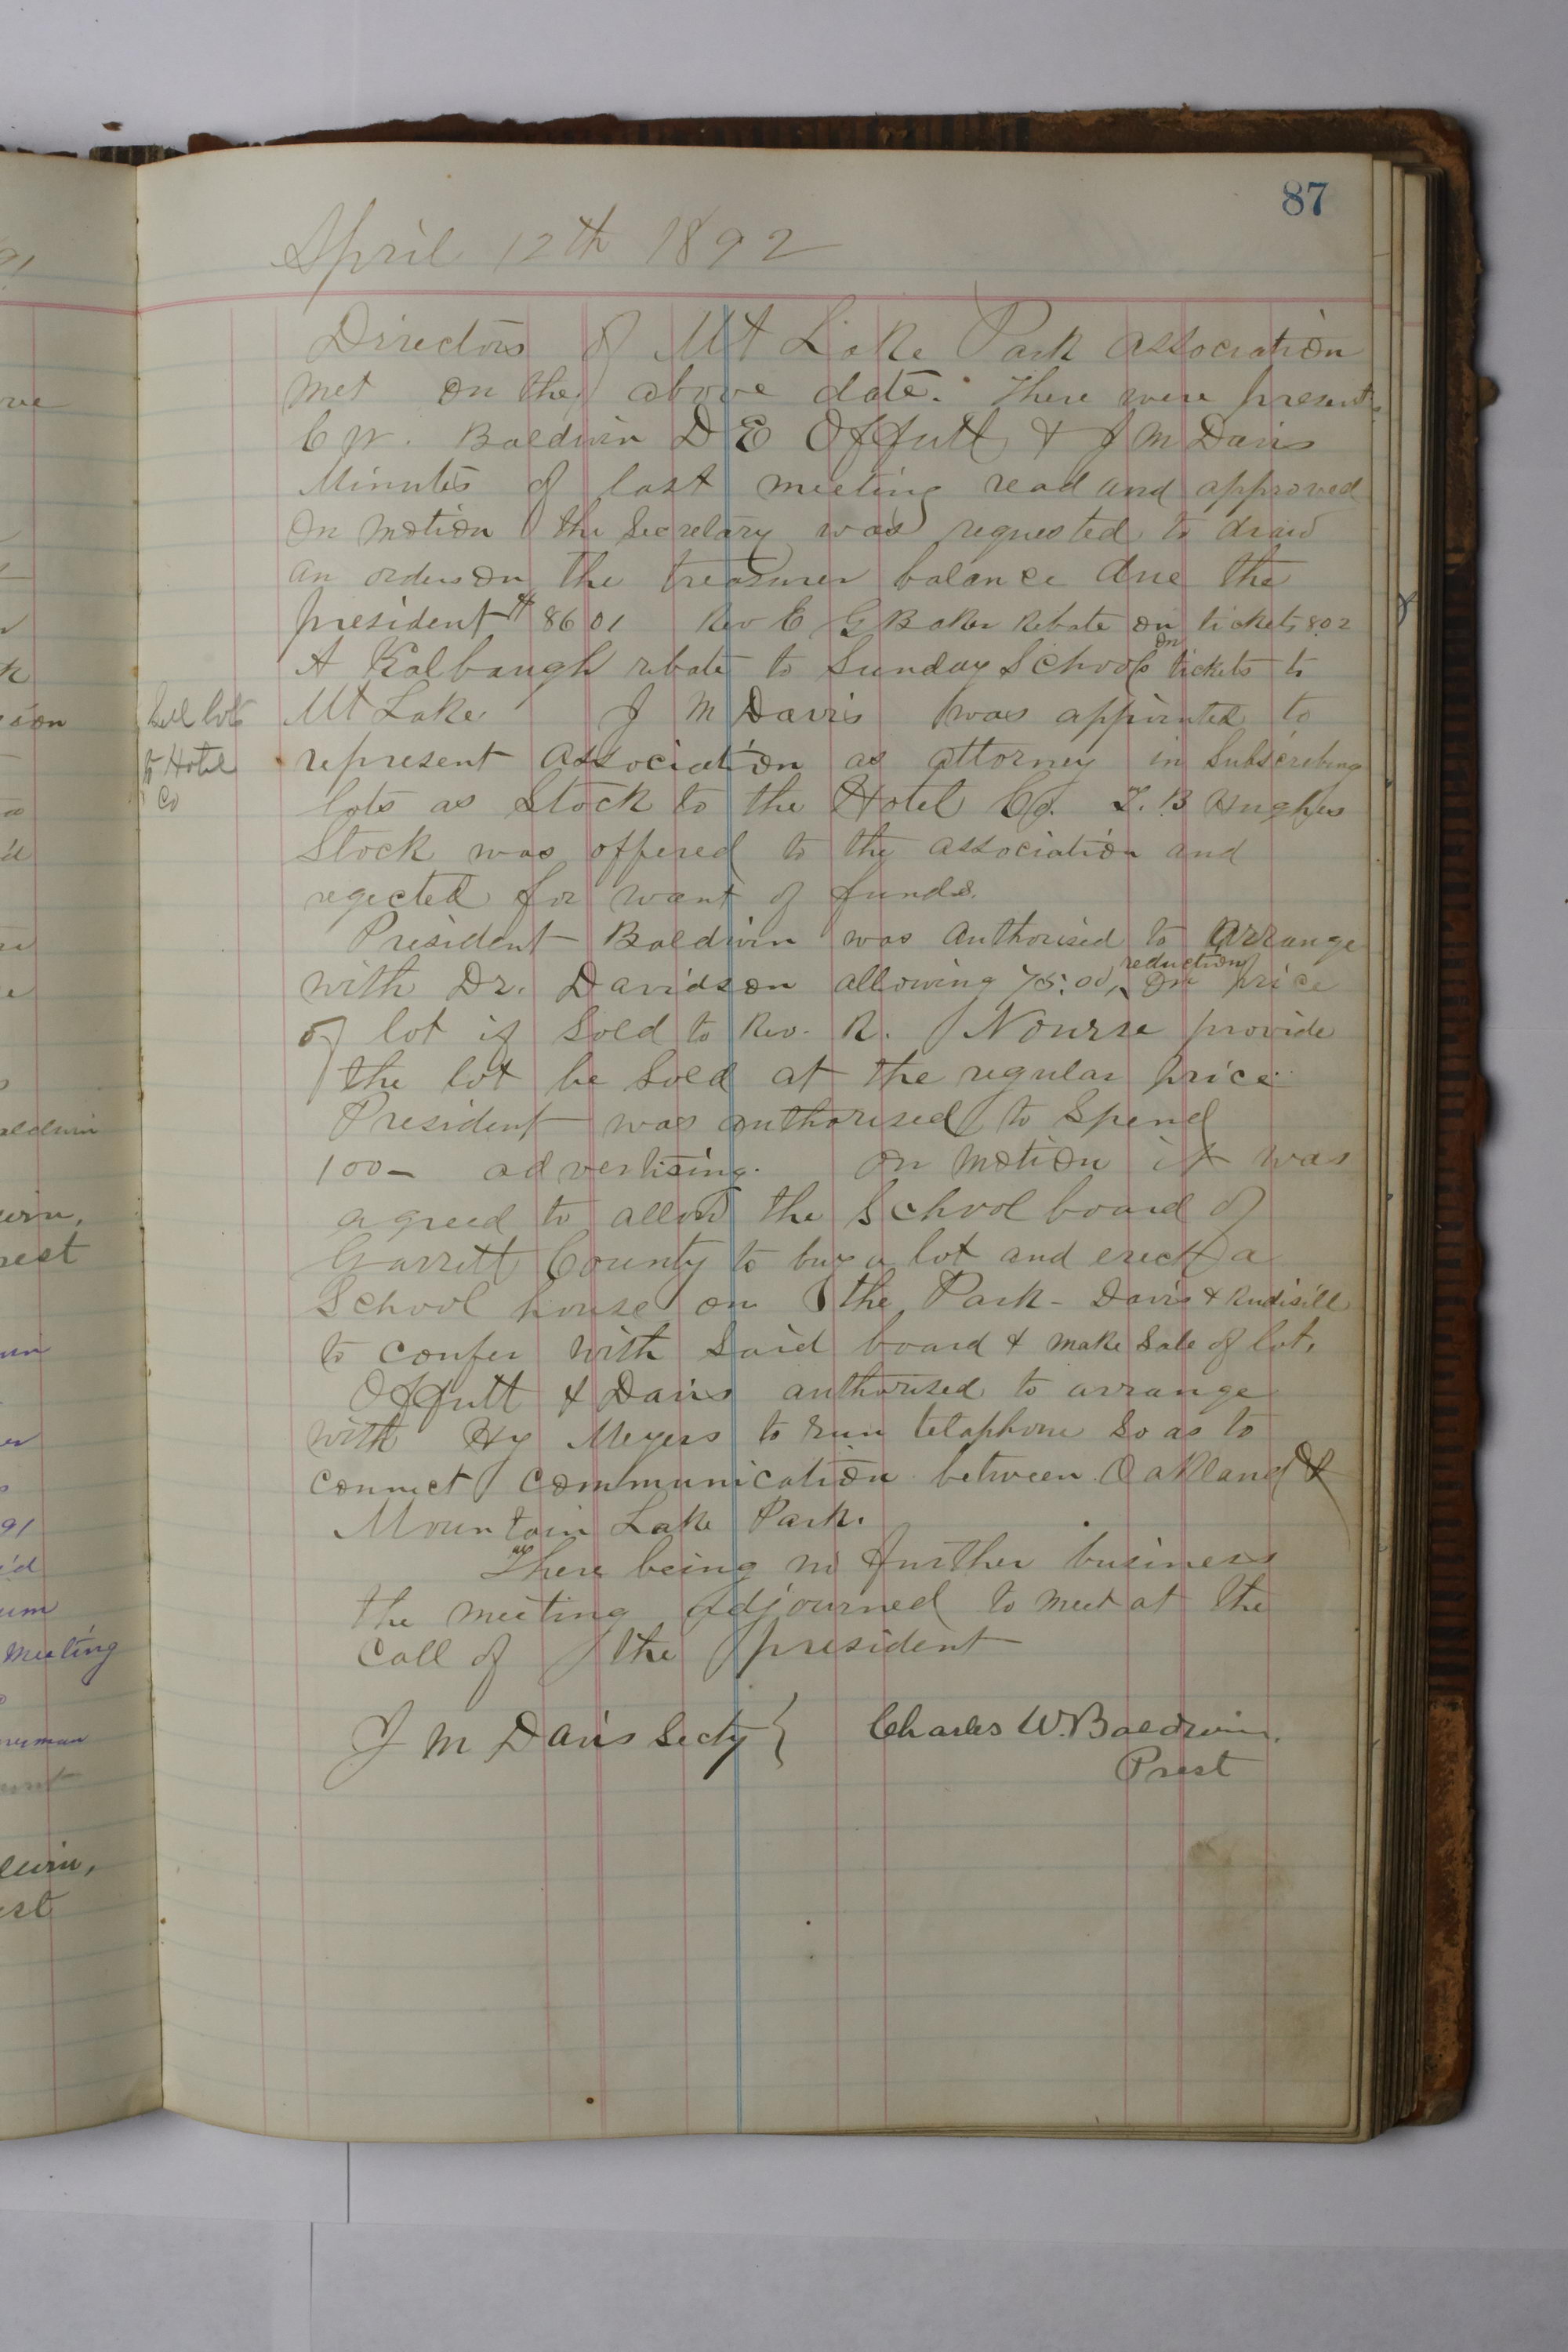 87
April 12th 1892
Directors of Mt Lake Park association
met on the above date. There were present
C W. Baldwin D E Offutt & J M Davis
Minutes of last meeting read and approved
On motion the Secretary was requested to draw
an order on the treasurer balance due the
president # 86 01 Rev E G Baker Rebate on tickets 802
A Kalbaugh rebate to Sunday Schools on tickets to
Mt Lake J M Davis was appointed to
Sell lots
to Hotel
Co
represent association as attorney in Subscribing
lots as Stock to the Hotel Co. T. B Hughes
Stock was offered to the association and
regected for want of funds.
President Baldwin was authorised to Arrange
with Dr. Davidson allowing 75.00, reduction on price
of lot if Sold to Rev. R. Nourse provide
the lot be Sold at the regular price
President was authorised to Spend
100- advertising. On motion it was
agreed to allow the School board of
Garrett County to buy a lot and erect a
School house on the Park - Davis & Rudisill
to confer with Said board & make Sale of lot.
Offutt & Davis authorized to arrange
with Hy Meyers to run telaphone So as to
connect communication between Oakland &
Mountain Lake Park.
There being no further business
the meeting adjourned to meet at the
call of the president
J M Davis Secty } Charles W. Baldwin.
Prest